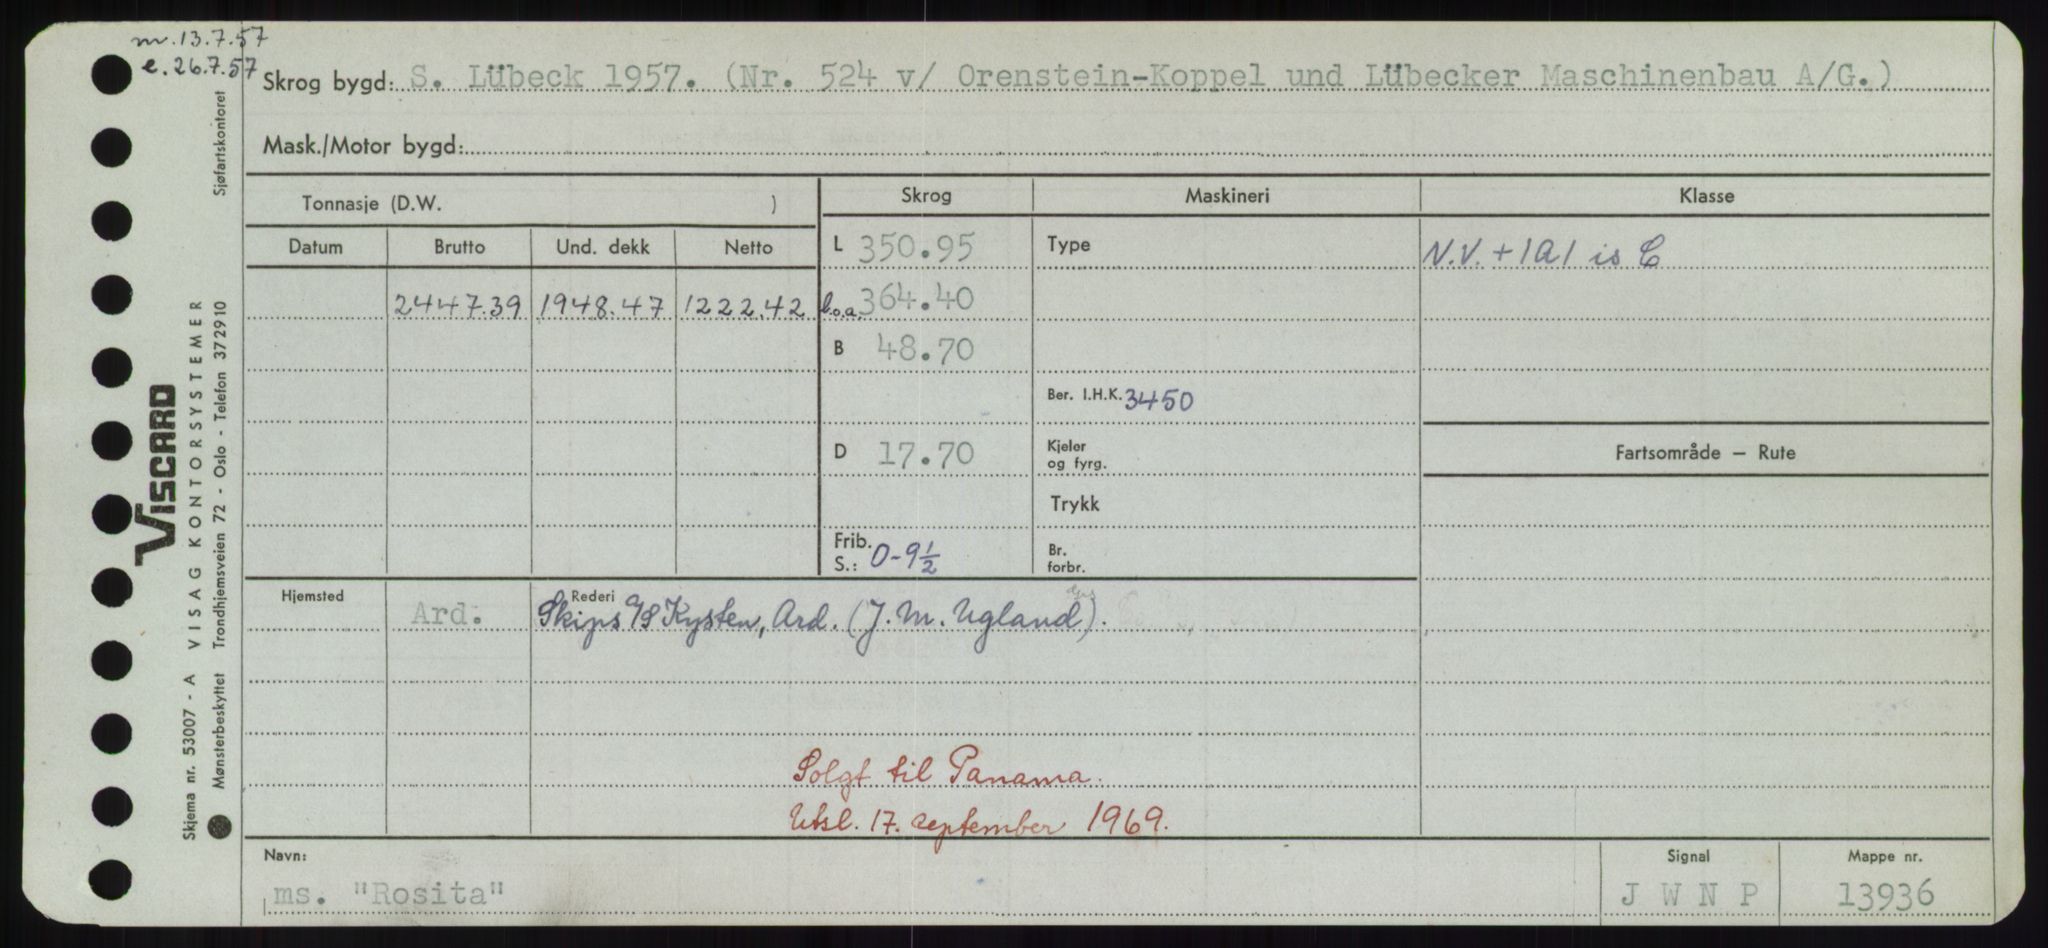 m. 13.7.57
e. 26.7.57
Skrog bygd: S. Lübeck 1957. (Nr. 524 v/ Orenstein-Koppel und Lübecker Maschinenbau A/G.)
Mask./Motor bygd:
Tonnasje (D.W. )
Skrog
Maskineri
Klasse
Datum Brutto Und. dekk Netto
L 350.95
Type
N.V. + 1A1 is C
2447.39 1948.47 1222.42
l.o.a. 364.40
B 48.70
Ber. I.H.K. 3450
D 17.70
Kjeler
og fyrg.
Fartsområde — Rute
Trykk
Frib.
S.: 0-9½
Br.
forbr.
Hjemsted
Rederi
Ard. Skips A/S Kysten, Ard. (J. M. Ugland).
Solgt til Panama.
Utsl. 17. september 1969.
Navn:
ms. "Rosita"
Signal
J W N P
Mappe nr.
13936
Skjema nr. 53007 - A VISAG KONTORSYSTEMER
Mønsterbeskyttet Trondhjemsveien 72 - Oslo - Telefon 372910 Sjøfartskontoret
VISCARD